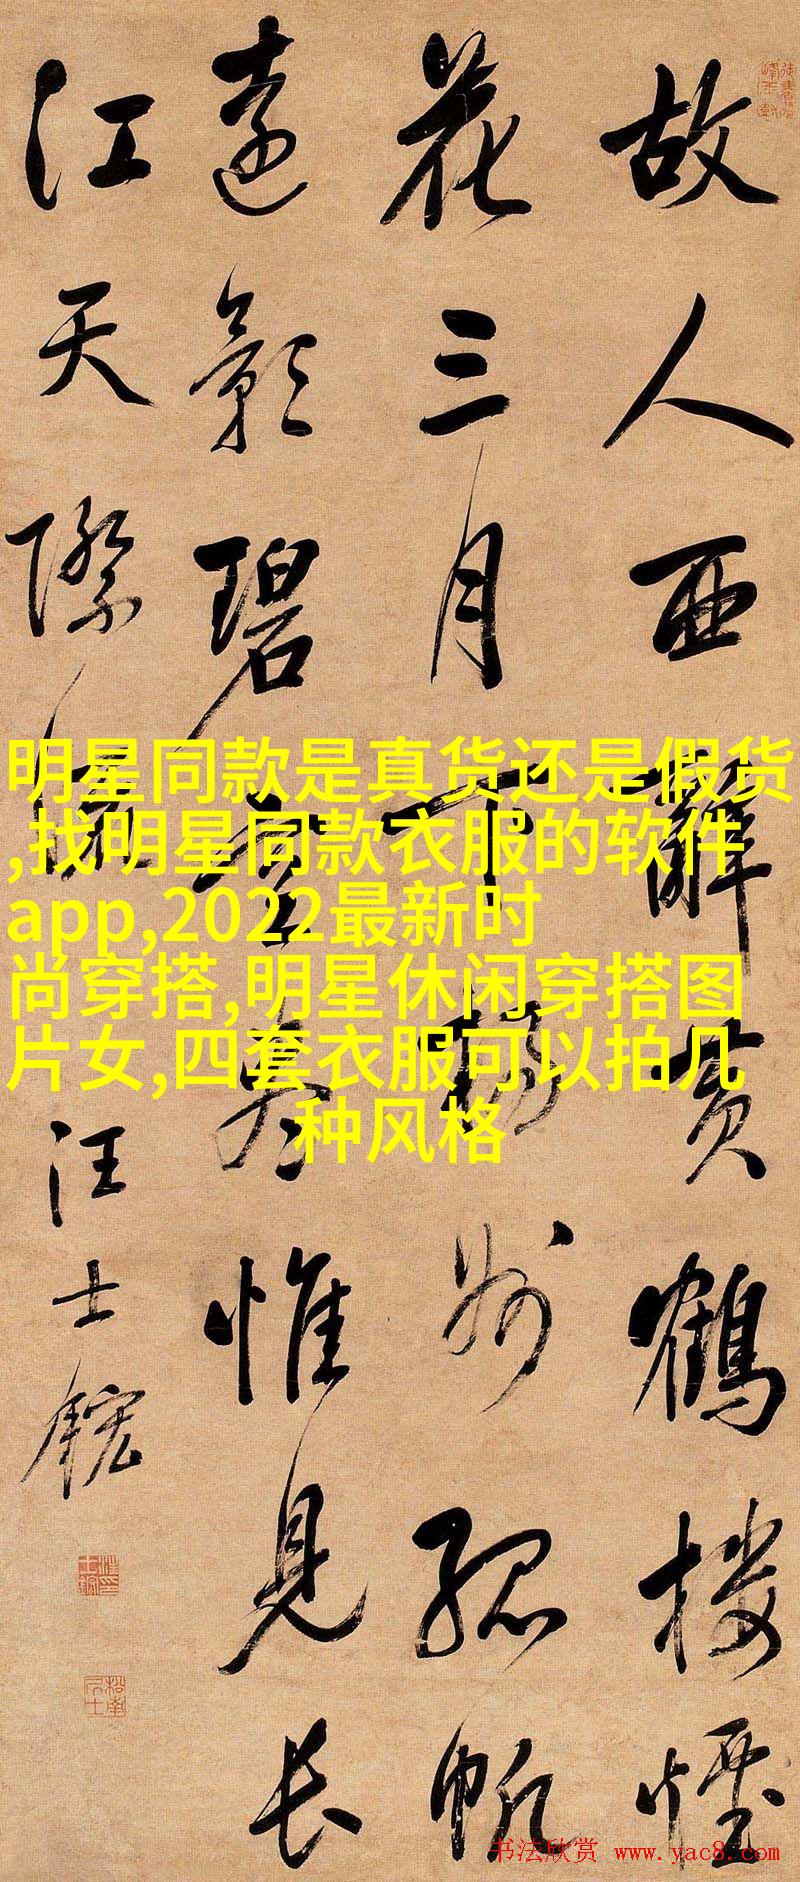 故人西辭黄鶴樓煙
花三月下揚州孤帆
遠影碧空盡惟見長
江天際流
汪士鋐
明星同款是真货还是假货
,找明星同款衣服的软件
app,2022最新时
尚穿搭,明星休闲穿搭图
片女,四套衣服可以拍几
种风格
书法欣赏 www.yac8.com